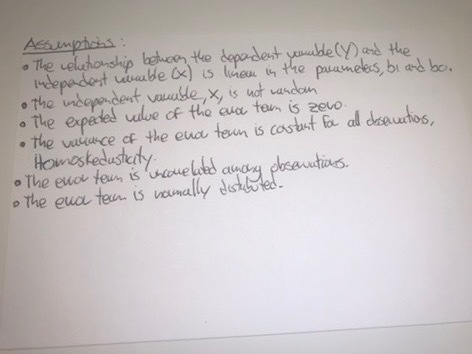 Assumptions:
• The relationship between the dependent variable (Y) and the
independent variable (X) is linear in the parameters, b1 and b0.
• The independent variable, X, is not random
• The expected value of the error term is zero.
• The variance of the error term is constant for all observations,
Homoskedasticity.
• The error term is uncorrelated among observations.
• The error term is normally distributed.